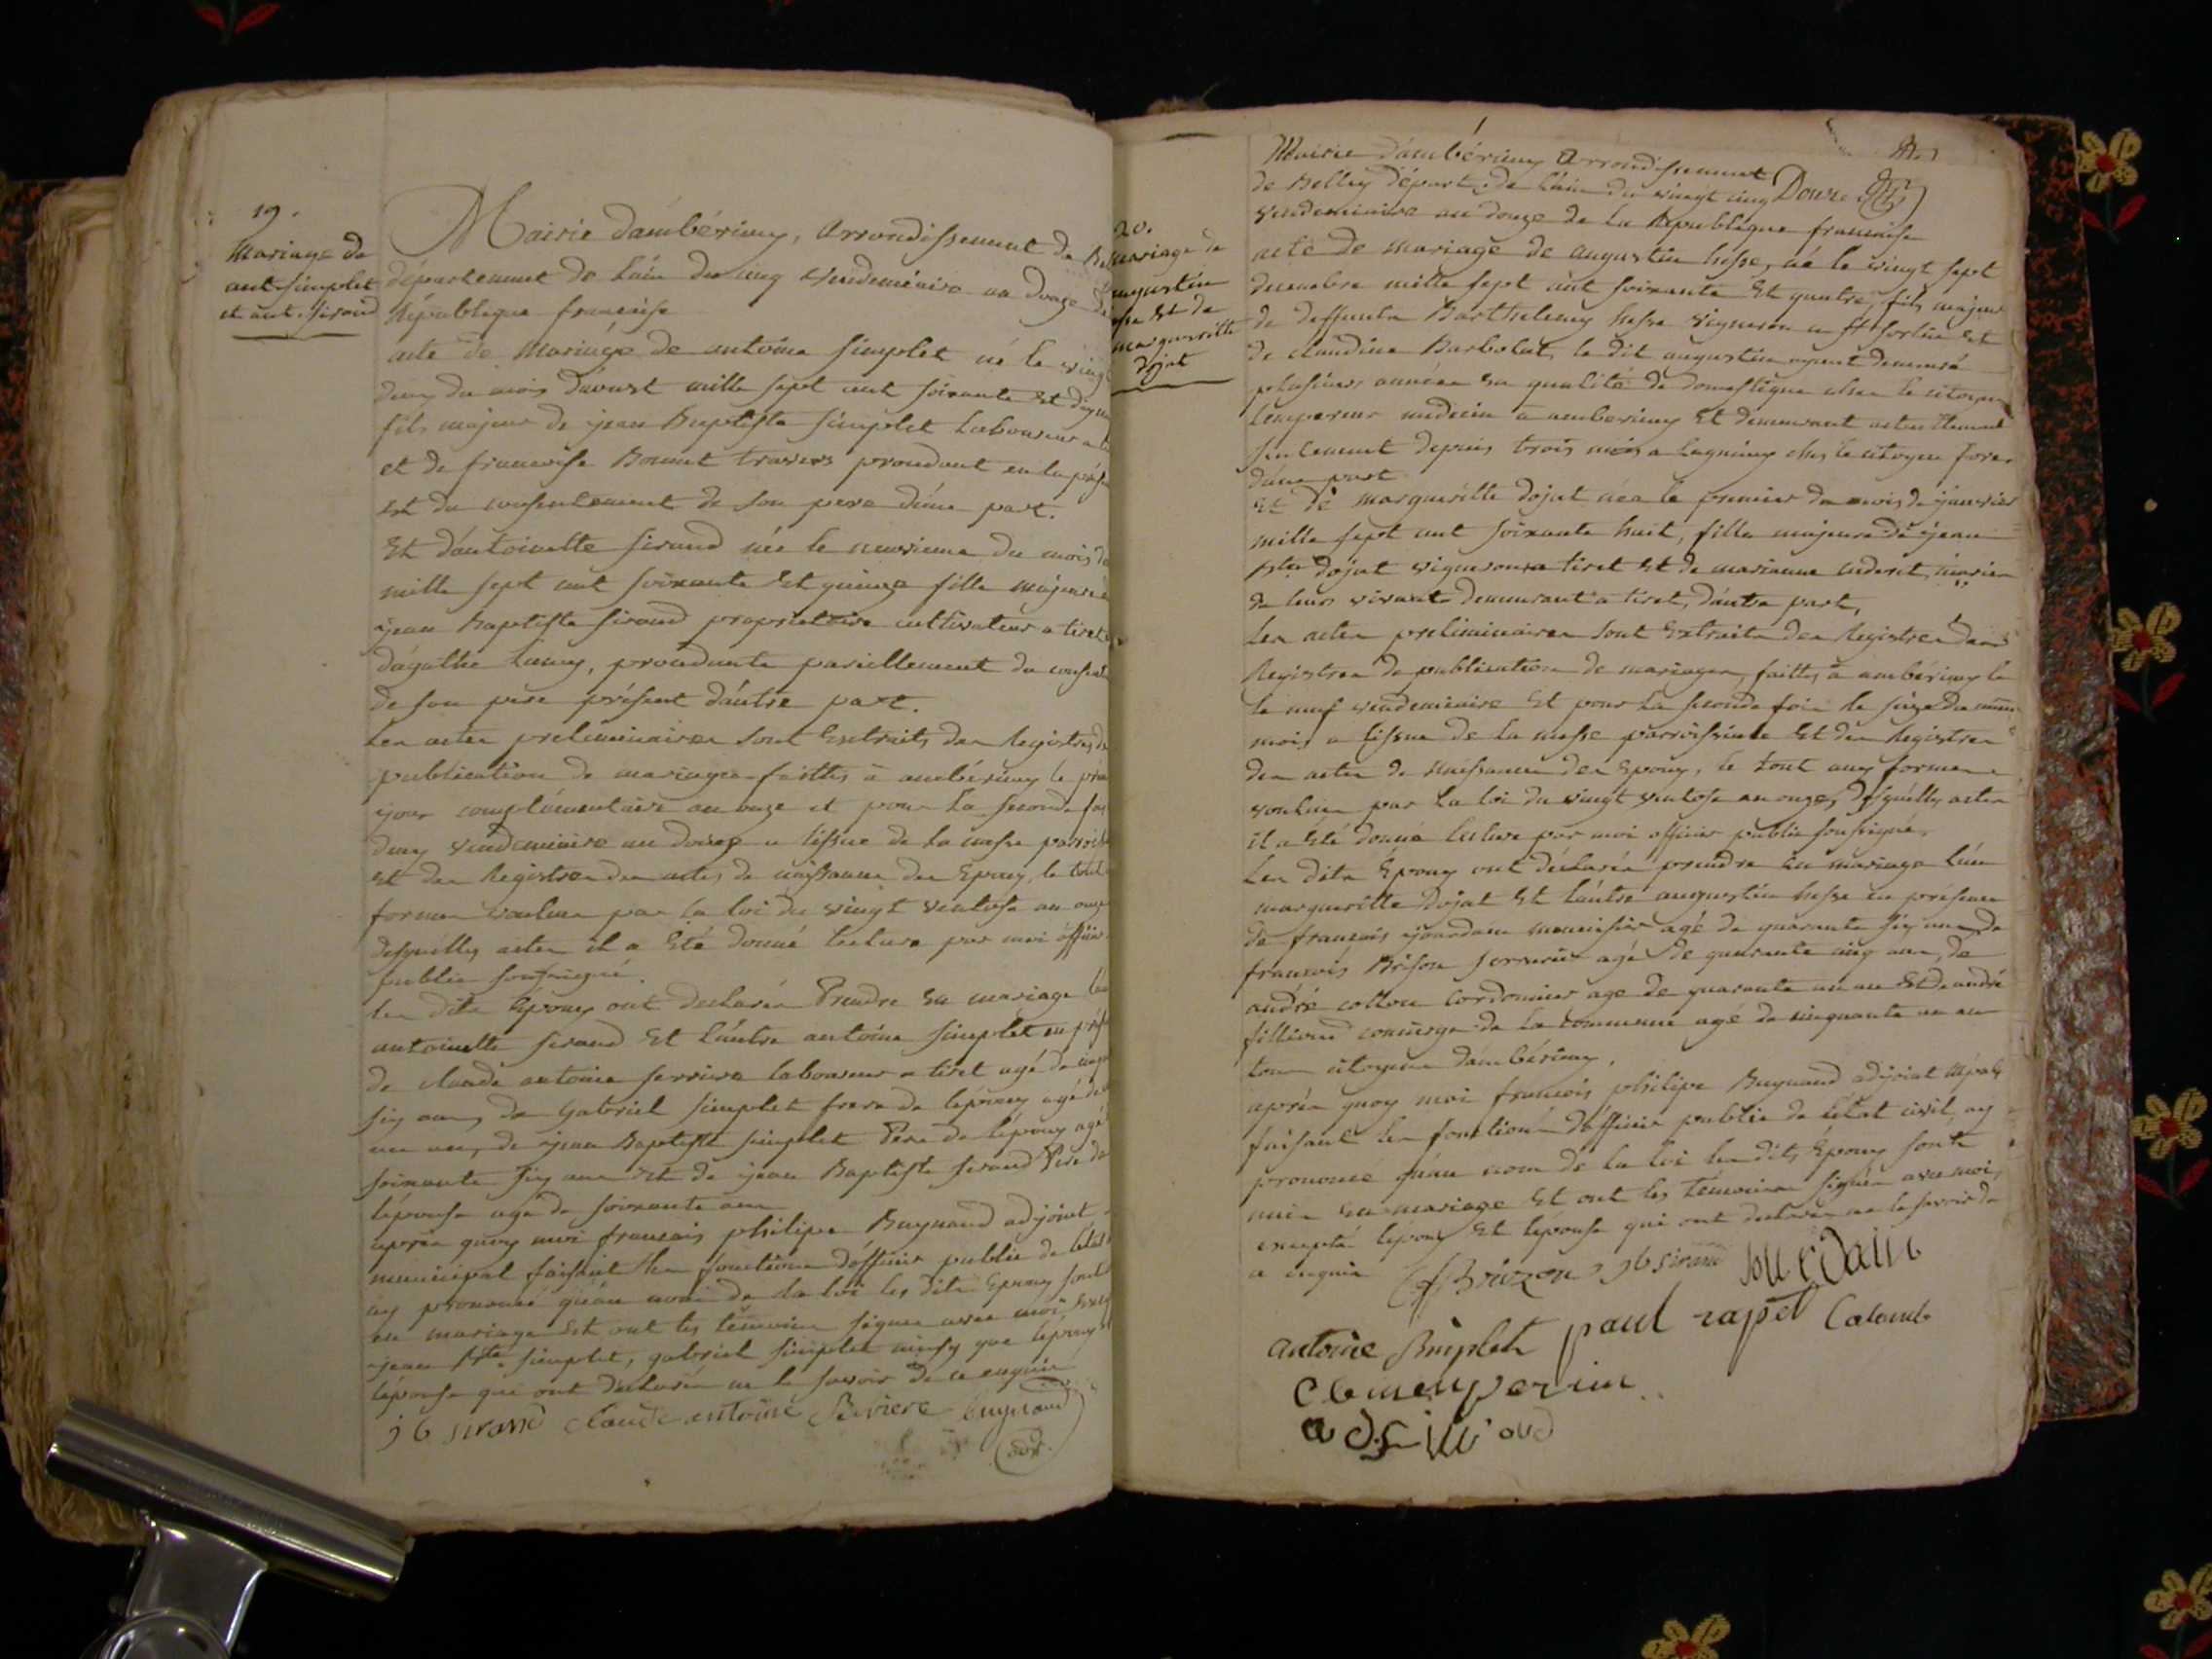 19.
Mariage de
ant. simplet
et ant. sirand
Mairie d'ambérieuy, arrondissement de Bel
département de l'ain du cinq vendemiaire an douze de
République francaise
acte de Mariage de antoine simplet né le vingt
deux du mois d'avoust mille sept cent soixante et dix
fils majeur de jean Baptiste simplet laboureur a
et de francoise Bonnet travers procedant en la pres
et du consentement de son pere d'une part.
Et d'antoinette sirand née le neuvieme du mois d
mille sept cent soixante et quinze fille majeure d
jean Baptiste sirand propriétaire cultivateur a tiret
d'agathe , procedante pareillement du consent
de son pere présent d'autre part.
Les actes preliminaires sont Extraits des Registres de
publication de mariages faittes a ambérieuy le prem
jour complémentaire an onze et pour la seconde foi
deux vendemiaire an douze a l'issue de la messe parroiss
et des Registres des actes de naissance des Epoux, le tout
formes voulues par la loi du vingt ventose an onze
desquelles actes il a été donné lecture par moi officier
public soussigné.
les dits époux ont declarés Prendre en mariage l'un
antoinette sirand Et l'autre antoine simplet en prés
de claude antoine serriere laboureur a tiret agé de cinqu
six ans, de gabriel simplet frere de l'époux agé de
un an, de jean Baptiste simplet Pere de l'époux agé
soixante six ans et de jean Baptiste sirand Pere de
l'épouse agé de soixante ans
après quoy moi francois philipe Buynand adjoint
municipal faisant les fonctions d'officier public de l'état
ay prononcé qu'au nom de la loi les dits Epoux sont
en mariage Et ont les temoins signés avec moi
jean Bte simplet, gabriel simplet ainsy que l'époux
l'épouse qui ont declarés ne le savoir de ce enquis
jb sirand claude antoine Serriere Buynand
adjt.
20.
mariage de
augustin
hesse et de
margueritte
dojat
Mairie d'ambérieuy arrondissement
de Belley départ. de l'ain du vingt cinq Douze
vendemiaire an douze de la République francaise
acte de mariage de augustin hesse, né le vingt sept
decembre mille sept cent soixante et quatre, fils majeur
de deffunts Barthelemy hesse vigneron a et
de claudine Barbolat, le dit augustin ayant demeuré
plusieurs années en qualité de domestique chez le citoyen
medecin a amberieuy Et demeurant actuellement
seulement depuis trois mois a lagnieu chez le citoyen
d'une part
Et de marguéritte dojat née le premier du mois de janvier
mille sept cent soixante huit, fille majeure de jean
Bte dojat vigneron a tiret et de marianne , mariés
de leurs vivants demeurant a tiret, d'autre part,
Les actes preliminaires sont Extraits des Registres des
Registres de publication de mariages, faittes a ambérieuy le
le neuf vendemiaire Et pour la seconde foi le seize du même
mois a l'issue de la messe parroissiale Et des Registres
des actes de naissances des Epoux, le tout aux formes
voulues par la loi du vingt ventose an onze, desquelles actes
il a été donné lecture par moi officier public soussigné,
Les dits Époux ont déclarés prendre en mariage l'un
marguerite Dojat Et l'autre augustin hesse en présence
de francois jourdain menuisier agé de quarante six ans, de
francois Brison serrurier agé de quarante cinq ans, de
andré collon cordonnier agé de quarante un an Et de andré
fillioud concierge de la commune agé de cinquante un an
tous citoyens d'ambérieuy,
après quoy moi francois philipe Buynand adjoint Mpal
faisant les fonctions d'officier public de l'état civil, ay
prononcé qu'au nom de la loi les dits, Époux sont
unis en mariage Et ont les temoins signés avec moi,
excepté l'époux Et l'épouse qui ont declarés ne le savoir de
ce enquis f Brizon jb sirand Jourdain
antoine Simplet paul rapet Colomb
Clemen perrin
ad fillioud